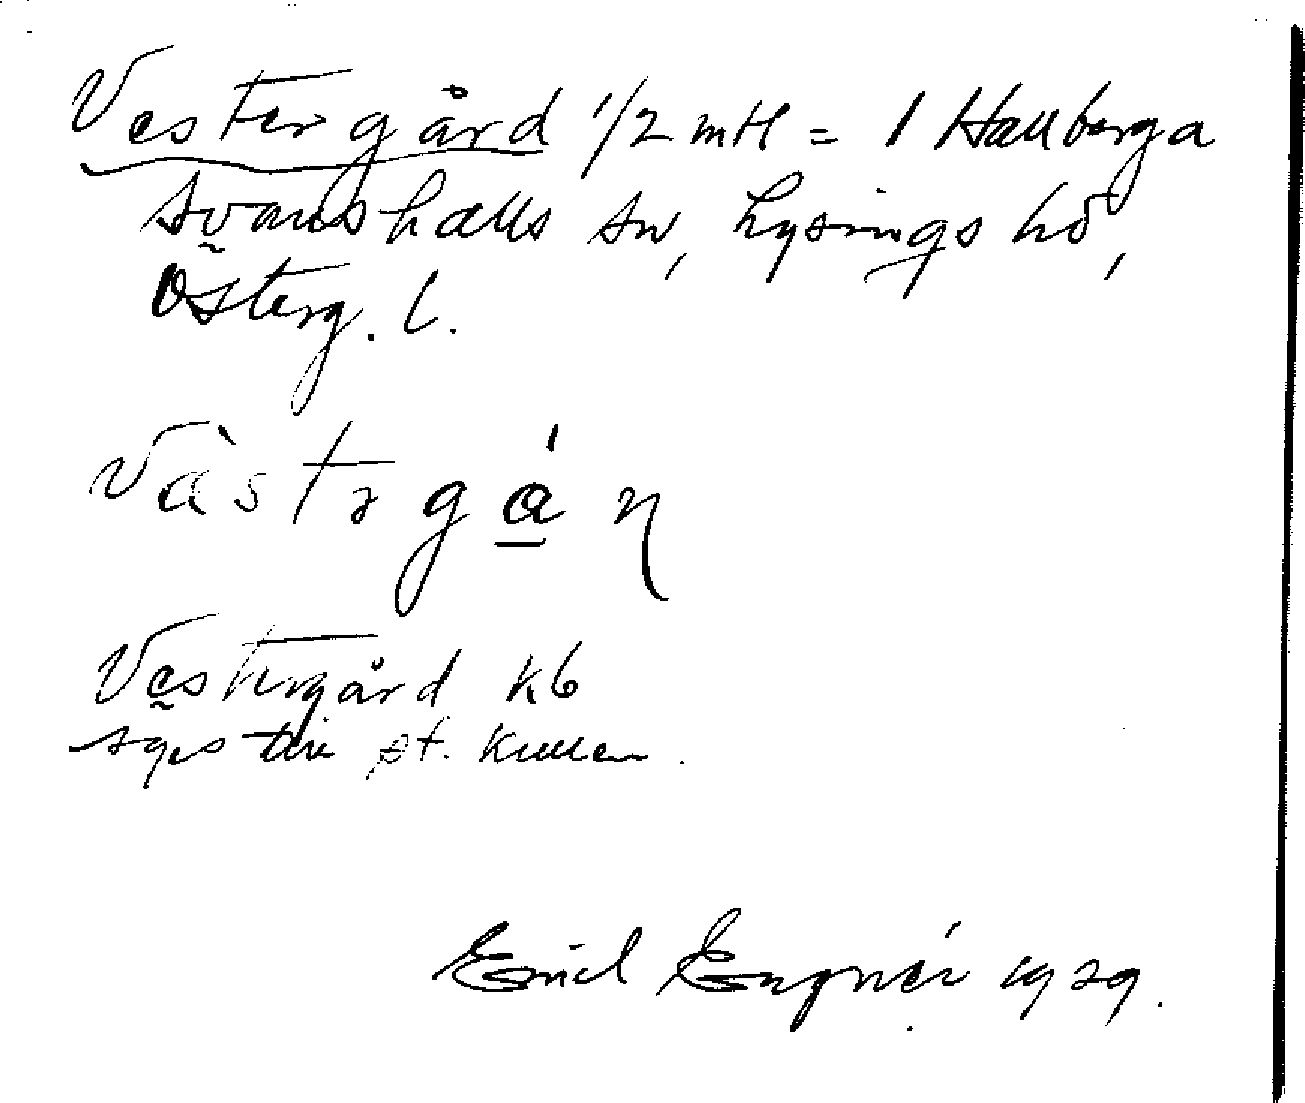 Vestergård 1/2 mtl = 1 Hallberga
Svanshalls sn, Lysings hd,
Österg. l.
Västrgá
Vestergård kb
säges till st. Kullen.
Emil Engnér 1929.